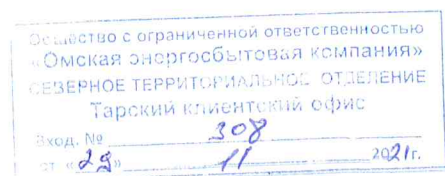 Общество с ограниченной ответственностью
«Омская энергосбытовая компания»
СЕВЕРНОЕ ТЕРРИТОРИАЛЬНОЕ ОТДЕЛЕНИЕ
Тарский клиентский офис
Вход. № 308
от «29» 11 2021г.